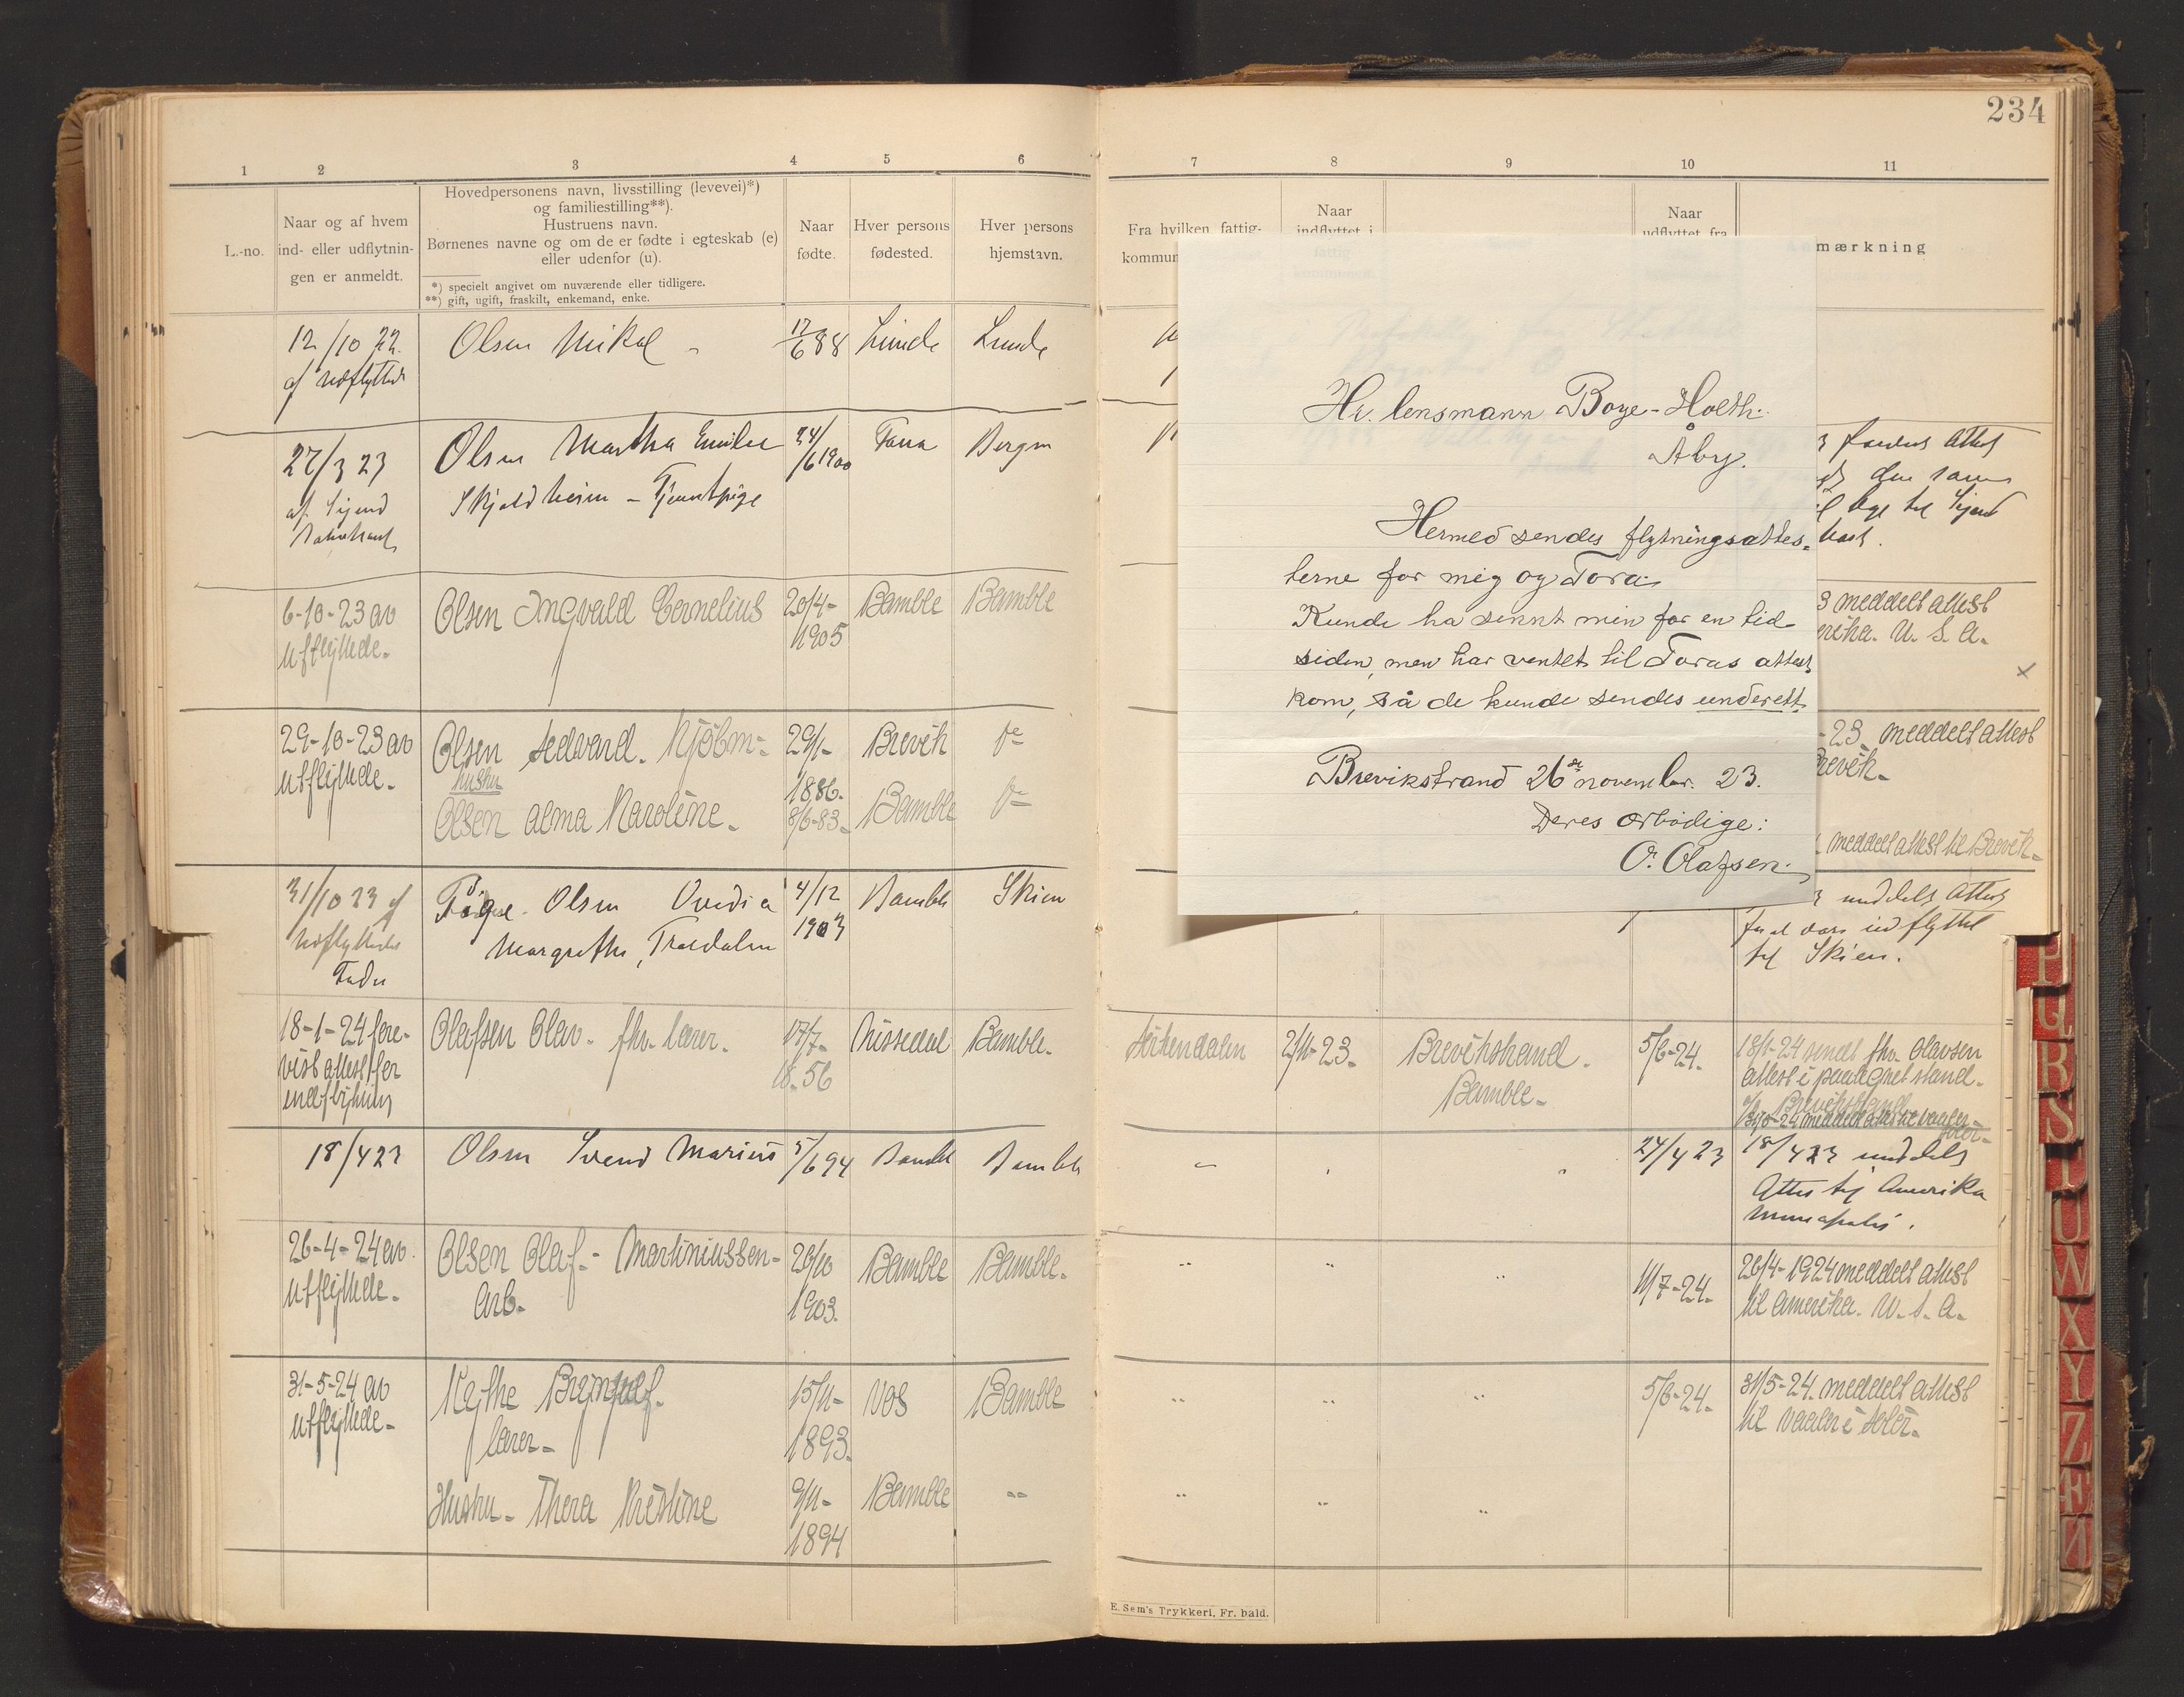 234
1 2 3 4 5 6 7 8 9 10 11
L.-no.
Naar og af hvem
ind- eller udflytnin-
gen er anmeldt.
Hovedpersonens navn, livsstilling (levevei)*)
og familiestilling**).
Hustruens navn.
Børnenes navne og om de er fødte i egteskab (e)
eller udenfor (u).
*) specielt angivet om nuværende eller tidligere.
**) gift, ugift, fraskilt, enkemand, enke.
Naar
fødte.
Hver persons
fødested.
Hver persons
hjemstavn.
Fra hvilken fattig-
kommun
Naar
indflyttet i
Naar
udflyttet fra
mærkning
12/10 22.
af Udflyttede
Olsen Mikal
17/6 88
Lunde
Lunde
27/3 23
Olsen Martha Emilie
Skjoldheim - Tjenestpige
24/6 1900
Fana
Bergen
6-10-23 av
utflyttede.
Olsen Ingvald Cornelius
20/4-
1905
Bamble
Bamble
29-10-23 av
utflyttede.
Olsen Edvard. Kjøbm-
hustru
Olsen Alma Karoline.
29/1-
1886.
8/6-83.
Brevik
Bamble
31/10 23 af
Udflyttedes
Fader
Pige. Olsen Ovedia
Margrethe, Traedalen
4/12
1903
Bamble
Skien
18-1-24 fore-
vist attest for
indflytning
Olafsen Olav. fhv. lærer.
17/7-
18.56
Nissedal
Bamble.
18/4 23
Olsen Svend Marius
5/6 94
Bamble
Bamble
26-4-24 av
utflyttede.
Olsen Olaf.- Martiniussen-
Arb.
26/10
1903.
Bamble
Bamble.
31-5-24 av
utflyttede-
lærer-
15/11-
1893.
Vos
Bamble
Hustru- Thora Kristine
9/11-
1894
Bamble
Hr. lensmann Boye-Holth.
Åby.
Hermed sendes flytningsattes-
terne for mig og Tora.
Kunde ha sennt min for en tid
siden, men har ventet til Toras attest
kom, så de kunde sendes underett.
Brevikstrand 26de november. 23.
Deres ærbødige:
O. Olafsen.
den samme
3 meddelt attest
erika. U. S. A.
-23. meddelt attest
Brevik-
meddelt attest til Brevik-
meddelt Attest
til Skien.
2/11-23.
Brevikstrand.
Bamble-
5/6-24.
18/1-24 sendt fhv. Olavsen
attest i paategnet stand.
Brevikstrand
24/4 23
18/4 23 meddelt
Attest til Amerika
11/7-24.
26/4-1924 meddelt attest
til Amerika. U. S. A.
5/6-24.
31/5-24. meddelt attest
til Vaaler i Solør.
E. Sem's Trykkeri, Fr. hald.
P
Q
R
S
T
U
W
X
Y
Z
Æ